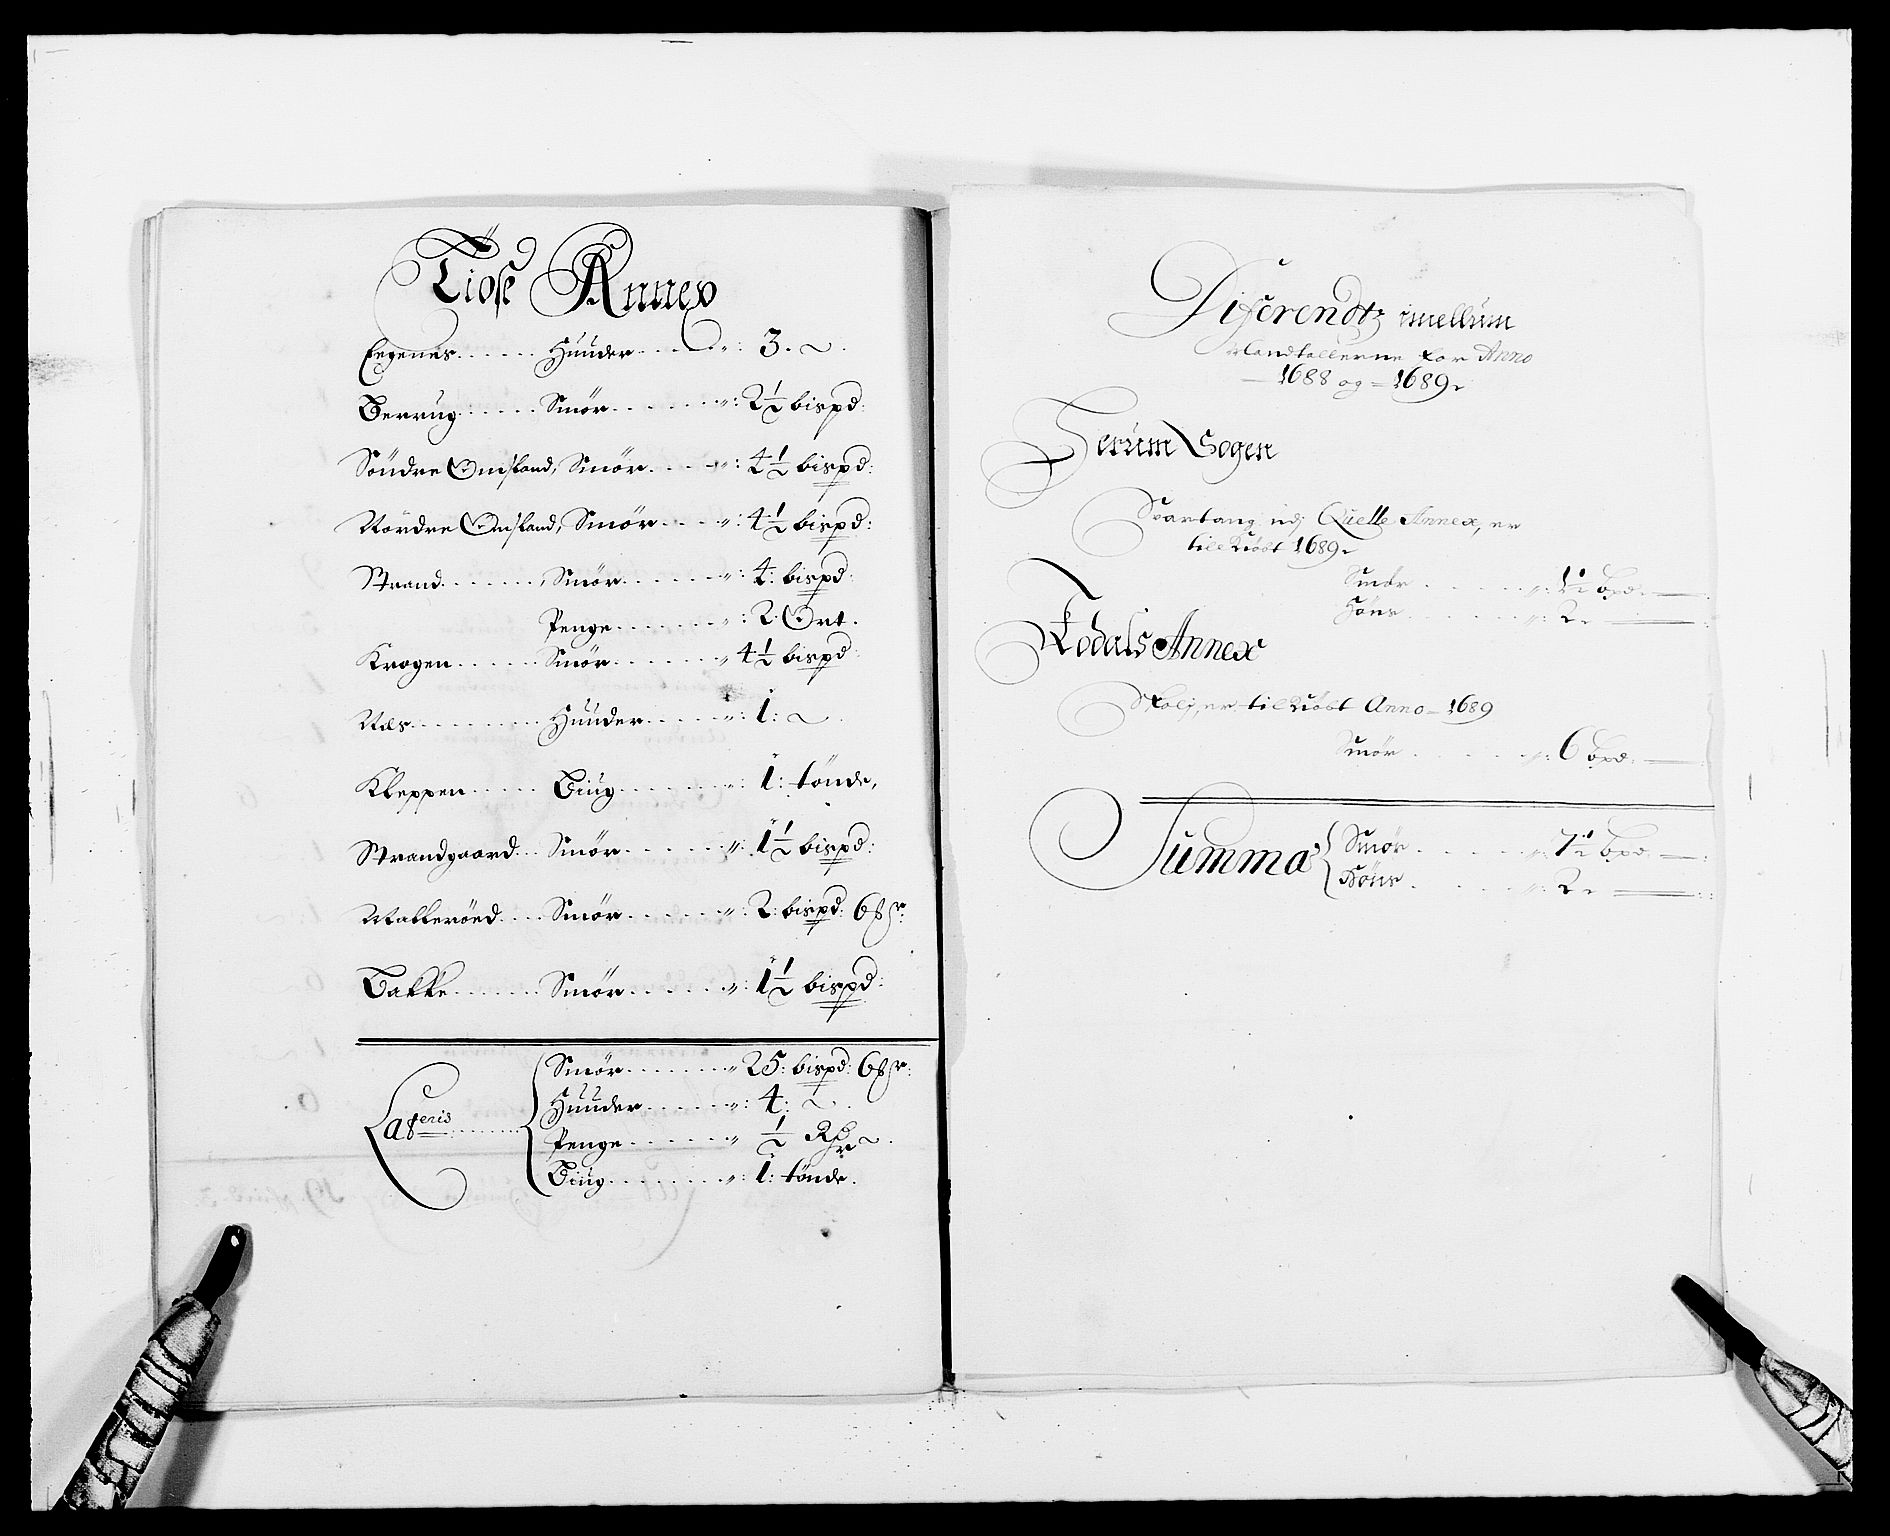 Tiöse Annex
Eegenes ...... Huuder ...... „: 3. ~.
Berrug ...... Smör ...... „: 2½ bispd:
Söndre Omsland, Smör .... „: 4½ bispd:
Nördre Omsland, Smör .... „: 4½ bispd:
Strand ......, Smör ...... „: 4: bispd:
Penge ...... „: 2. Ort.
Krogen ...... Smör ...... „ 4½ bispd:
Næs ........ Huuder ...... „: 1: ~.
Kleppen ..... Biug ...... „: 1: tönde,
Strandgaard ... Smör ...... „: 1½ bispd:
Malleröed .... Smör ...... „: 2: bispd: 6
Bakke ...... Smör ...... „: 1½ bispd:
Lateris ......
Smör ...... „ 25: bispd: 6
Huuder ...... „: 4: ~.
Penge ...... „ ½ Rdr ~.
Biug ...... „: 1: tönde.
Diferendtz imellum
Mandtallerne for Anno
— 1688 og — 1689.
Serum Sogen
Svartang udj Quelle Annex, er
tillkiöbt 1689.
Smör ...... „: 1½ bpd. —
Höns ...... „: 2. —
Kodals Annex
Skolj, er tilkiöbt Anno — 1689
Smör ...... „: 6 bpd. —
Summa
Smör ...... „: 7½ bpd. —
Höns ...... „: 2. —